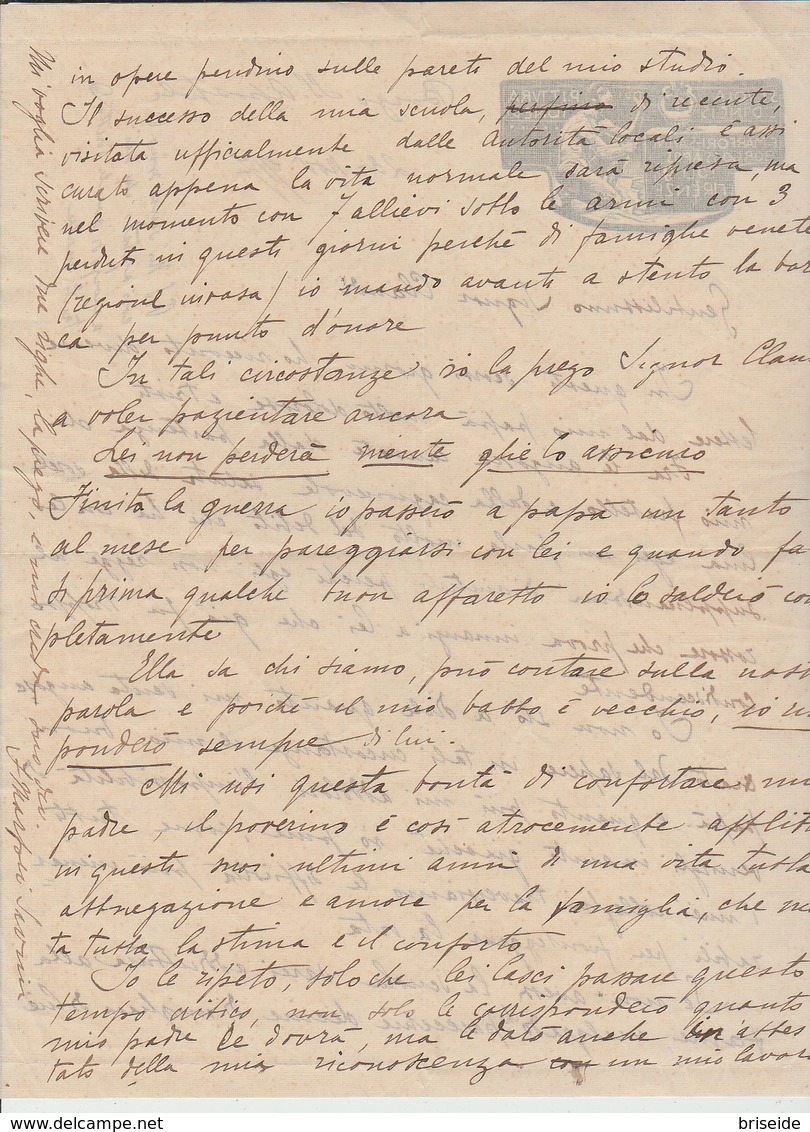 in opere pendino sulle pareti del mio studio.
Il successo della mia scuola, perfino di recente,
visitata ufficialmente dalle Autorità locali è assi
curato appena la vita normale sarà ripresa, ma
nel momento con 7 allievi sotto le armi con 3
perduti in questi giorni perchè di famiglie venete
(regione invasa) io mando avanti a stento la bar
ca per punto d'onore
In tali circostanze io la prego Signor Clau
a voler pazientare ancora
Lei non perderà niente glie lo assicuro
Finita la guerra io passerò a papà un tanto
al mese per pareggiarsi con lei e quando fa
si prima qualche buon affaretto io lo salderò com
pletamente
Ella sa chi siamo, può contare sulla nost
parola e poichè il mio babbo è vecchio, io ris
ponderò sempre di lui.
Mi usi questa bontà di confortare mio
padre, il poverino è così atrocemente afflit
in questi suoi ultimi anni di una vita tutta
abnegazione e amore per la famiglia, che me
ta tutta la stima e il conforto
Io le ripeto, solo che lei lasci passare questo
tempo critico, non solo le corrisponderò quanto
mio padre Le dovrà, ma le darò anche in attes
tato della mia riconoscenza con un mio lavoro
Mi voglia scrivere due righe, la prego, e mi creda suo dev.
briseide